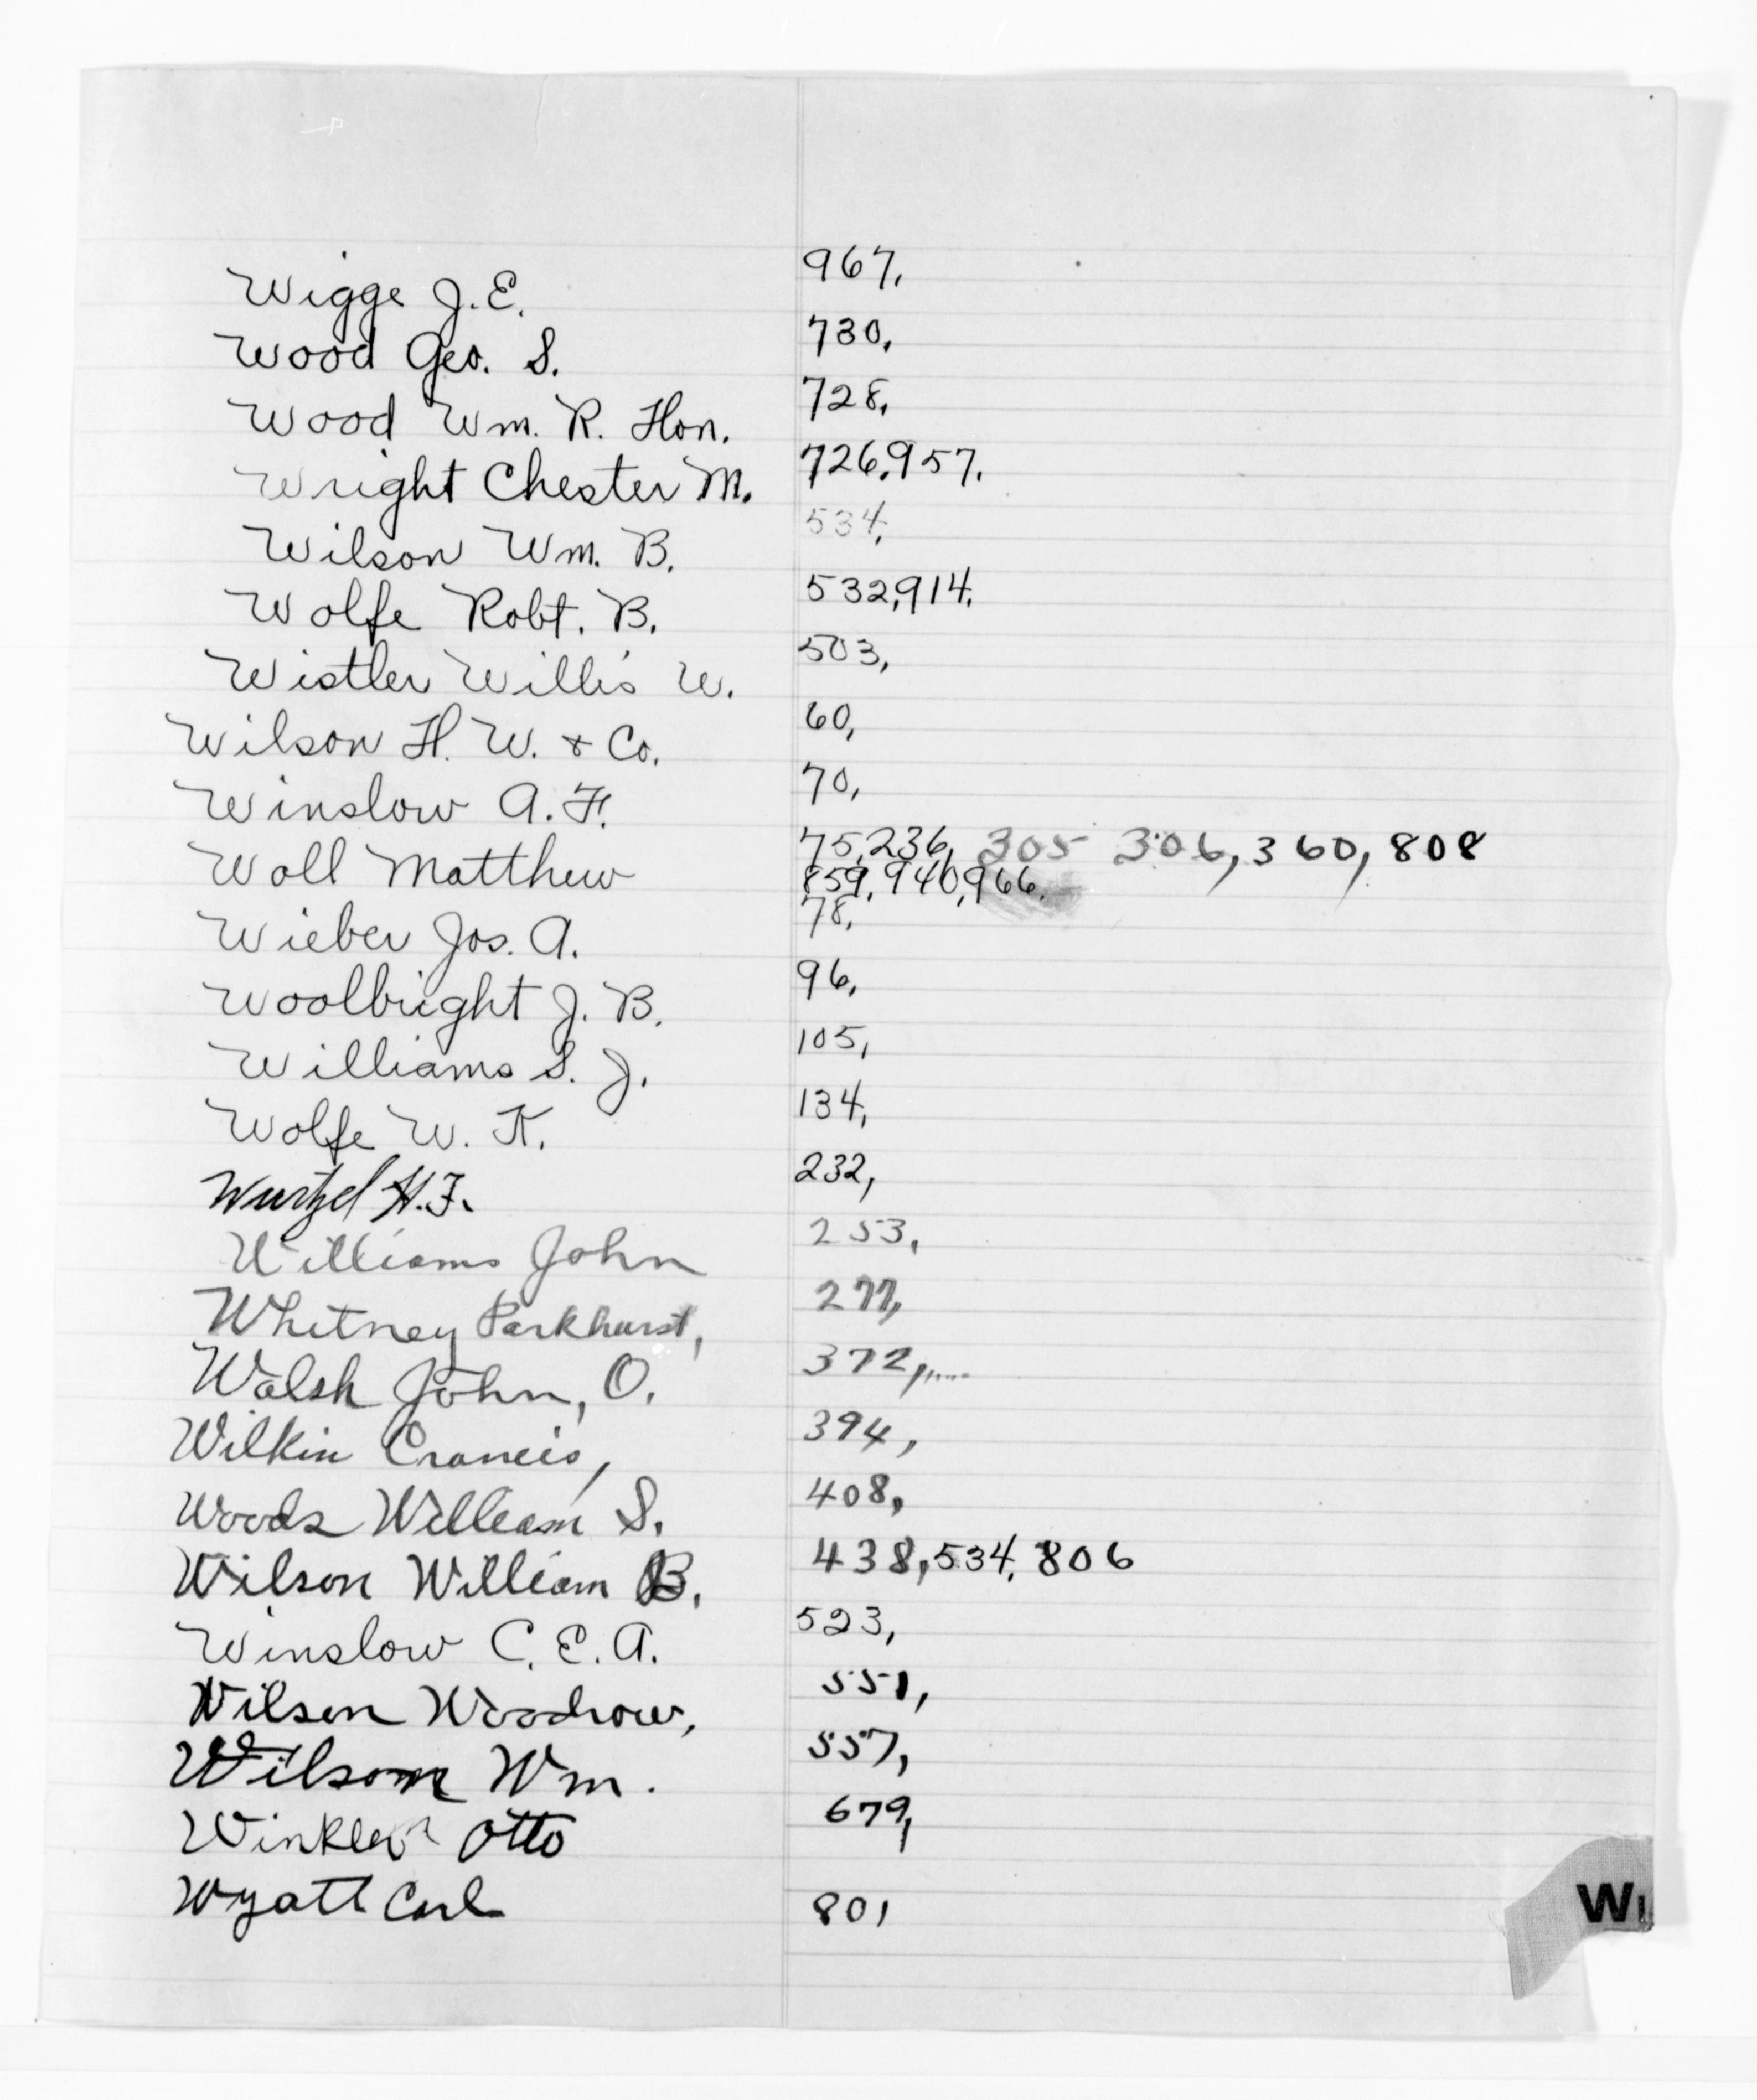 Wigge J.E. 967,
Wood Geo. S. 730,
Wood Wm. R. Hon. 728,
Wright Chester M. 726,957,
Wilson Wm. B. 534,
Wolfe Robt. B. 532,914,
Wistler Willis W. 503,
Wilson H. W. & Co. 60,
Winslow A. F. 70,
Woll Matthew 75,236, 305 306, 360, 808
859, 940,966.
Wieber Jos. A. 78,
Woolbright J. B. 96,
Williams S. J. 105,
Wolfe W. K. 134,
Wurtzel H.F. 232,
Williams John 253,
Whitney Parkhurst, 277,
Walsh John, O. 372,.....
Wilkin Crancis, 394,
Woods William S. 408,
Wilson William B. 438,534, 806
Winslow C. E. A. 523,
Wilson Woodrow, 551,
Wilson Wm. 557,
Winkler Otto 679,
Wyatt Carl 801
Wi